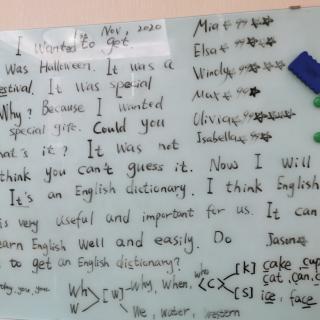 Nov, 2020
I Wanted to get.
was Halloween. It was a
estival. It was special
Why? Because I wanted
special gift. Could you
hat's it? It was not
think you can't guess it. Now I will
It's an English dictionary. I think English
is very useful and important for us. It can
earn English well and easily. Do
to get an English dictionary?
Mia
Elsa
Windy
Max
Olivia
Isabella
Jason
Wh [w] Why, When, who
We, water, western
C [k] cake cup
cat, can, c
[s] ice, face